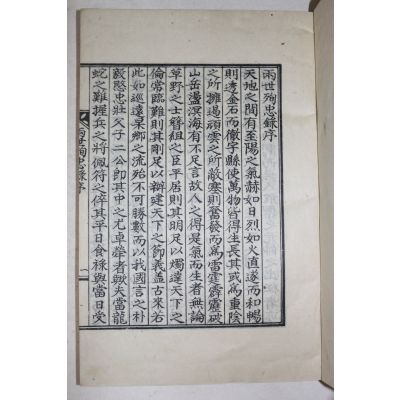 兩世殉忠錄序
天地之間有至陽之氣赫如日烈如火直遂而和暢
則透金石而徹宇縣使萬物皆得生長其或爲重陰
之所擁遏頑雲之所敵塞則奮發而爲雷霆霹靂破
山岳盪溟海有不足言故人之得是氣而生者無論
草野之士簪組之臣平居則其明足以燭達天下之
倫常臨難則其剛足以辦建天下之節義盖古來若
此如巡遠杲卿之流殆不可勝數而以我國言之朴
毅愍忠壯父子二公卽其中之尤卓犖者歟夫當龍
蛇之難握兵之將佩符之倅其平日食祿與當日受
兩世殉忠錄序
一